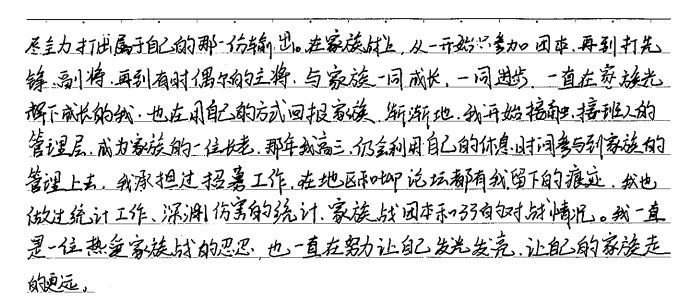 尽全力打出属于自己的那一份输出。在家族战上,从一开始只参加团本,再到打先
锋、副将,再到有时偶尔的主将,与家族一同成长,一同进步,一直在家族光
辉下成长的我,也在用自己的方式回报家族,渐渐地,我开始接触,接班人的
管理层,成为家族的一位长老,那年我高三,仍会利用自己的休息时间参与到家族的
管理上去,我承担过招募工作,在地区和 论坛都有我留下的痕迹,我也
做过统计工作、深渊伤害的统计、家族战团本和 的对战情况。我一直
是一位热爱家族战的忍忍,也一直在努力让自己发光发亮,让自己的家族走
的更远。